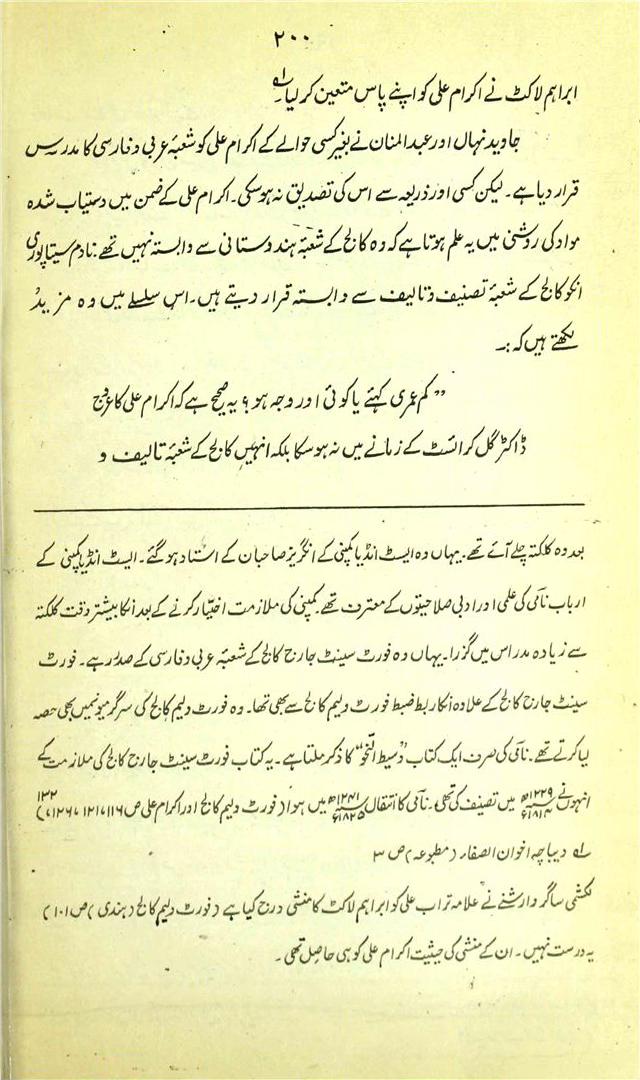 ۲۰۰
ابراہم لاکٹ نے اکرام علی کو اپنے پاس متعین کر لیا۔؎۱
جاوید نہاں اور عبدالمنان نے بغیر کسی حوالے کے اکرام علی کو شعبۂ عربی و فارسی کا مدرس
قرار دیا ہے۔ لیکن کسی اور ذریعہ سے اس کی تصدیق نہ ہوسکی۔ اکرام علی کے ضمن میں دستیاب شدہ
مواد کی روشنی میں یہ علم ہوتا ہے کہ وہ کالج کے شعبۂ ہندوستانی سے وابستہ نہیں تھے۔ نادم سیتاپوری
انکو کالج کے شعبۂ تصنیف و تالیف سے وابستہ قرار دیتے ہیں۔ اس سلسلے میں وہ مزید
لکھتے ہیں کہ:۔
” کم عمری کہئے یا کوئی اور وجہ ہو ؟ یہ صحیح ہے کہ اکرام علی کا عروج
ڈاکٹر گل کرائسٹ کے زمانے میں نہ ہوسکا بلکہ انہیں کالج کے شعبۂ تالیف و
بعد وہ کلکتہ چلے آئے تھے۔ یہاں وہ ایسٹ انڈیا کمپنی کے انگریز صاحبان کے استاد ہوگئے۔ ایسٹ انڈیا کمپنی کے
ارباب نامی کی علمی اور ادبی صلاحیتوں کے معترف تھے۔ کمپنی کی ملازمت اختیار کرنے کے بعد انکا بیشتر وقت کلکتہ
سے زیادہ مدراس میں گزرا۔ یہاں وہ فورٹ سینٹ جارج کالج کے شعبۂ عربی و فارسی کے صدر رہے۔ فورٹ
سینٹ جارج کالج کے علاوہ انکا ربط ضبط فورٹ ولیم کالج سے بھی تھا۔ وہ فورٹ ولیم کالج کی سرگرمیونمیں بھی حصہ
لیا کرتے تھے۔ نامی کی صرف ایک کتاب ”وسیط النحو“ کا ذکر ملتا ہے۔ یہ کتاب فورٹ سینٹ جارج کالج کی ملازمت کے
انہوں نے ۱۲۲۹ھ ۱۸۱۴ء میں تصنیف کی تھی۔ نامی کا انتقال ۱۲۴۱ھ ۱۸۲۵ء میں ہوا (فورٹ ولیم کالج اور اکرام علی ص ۱۱۶، ۱۲۱، ۱۲۶، ۱۳۲)
؎۱ دیباچہ اخوان الصفار (مطبوعہ) ص ۳
لکشمی ساگر وارشنے نے علامہ تراب علی کو ابراہم لاکٹ کا منشی درج کیا ہے (فورٹ ولیم کالج (ہندی) ص ۱۰۱)
یہ درست نہیں۔ ان کے منشی کی حیثیت اکرام علی کو ہی حاصل تھی۔